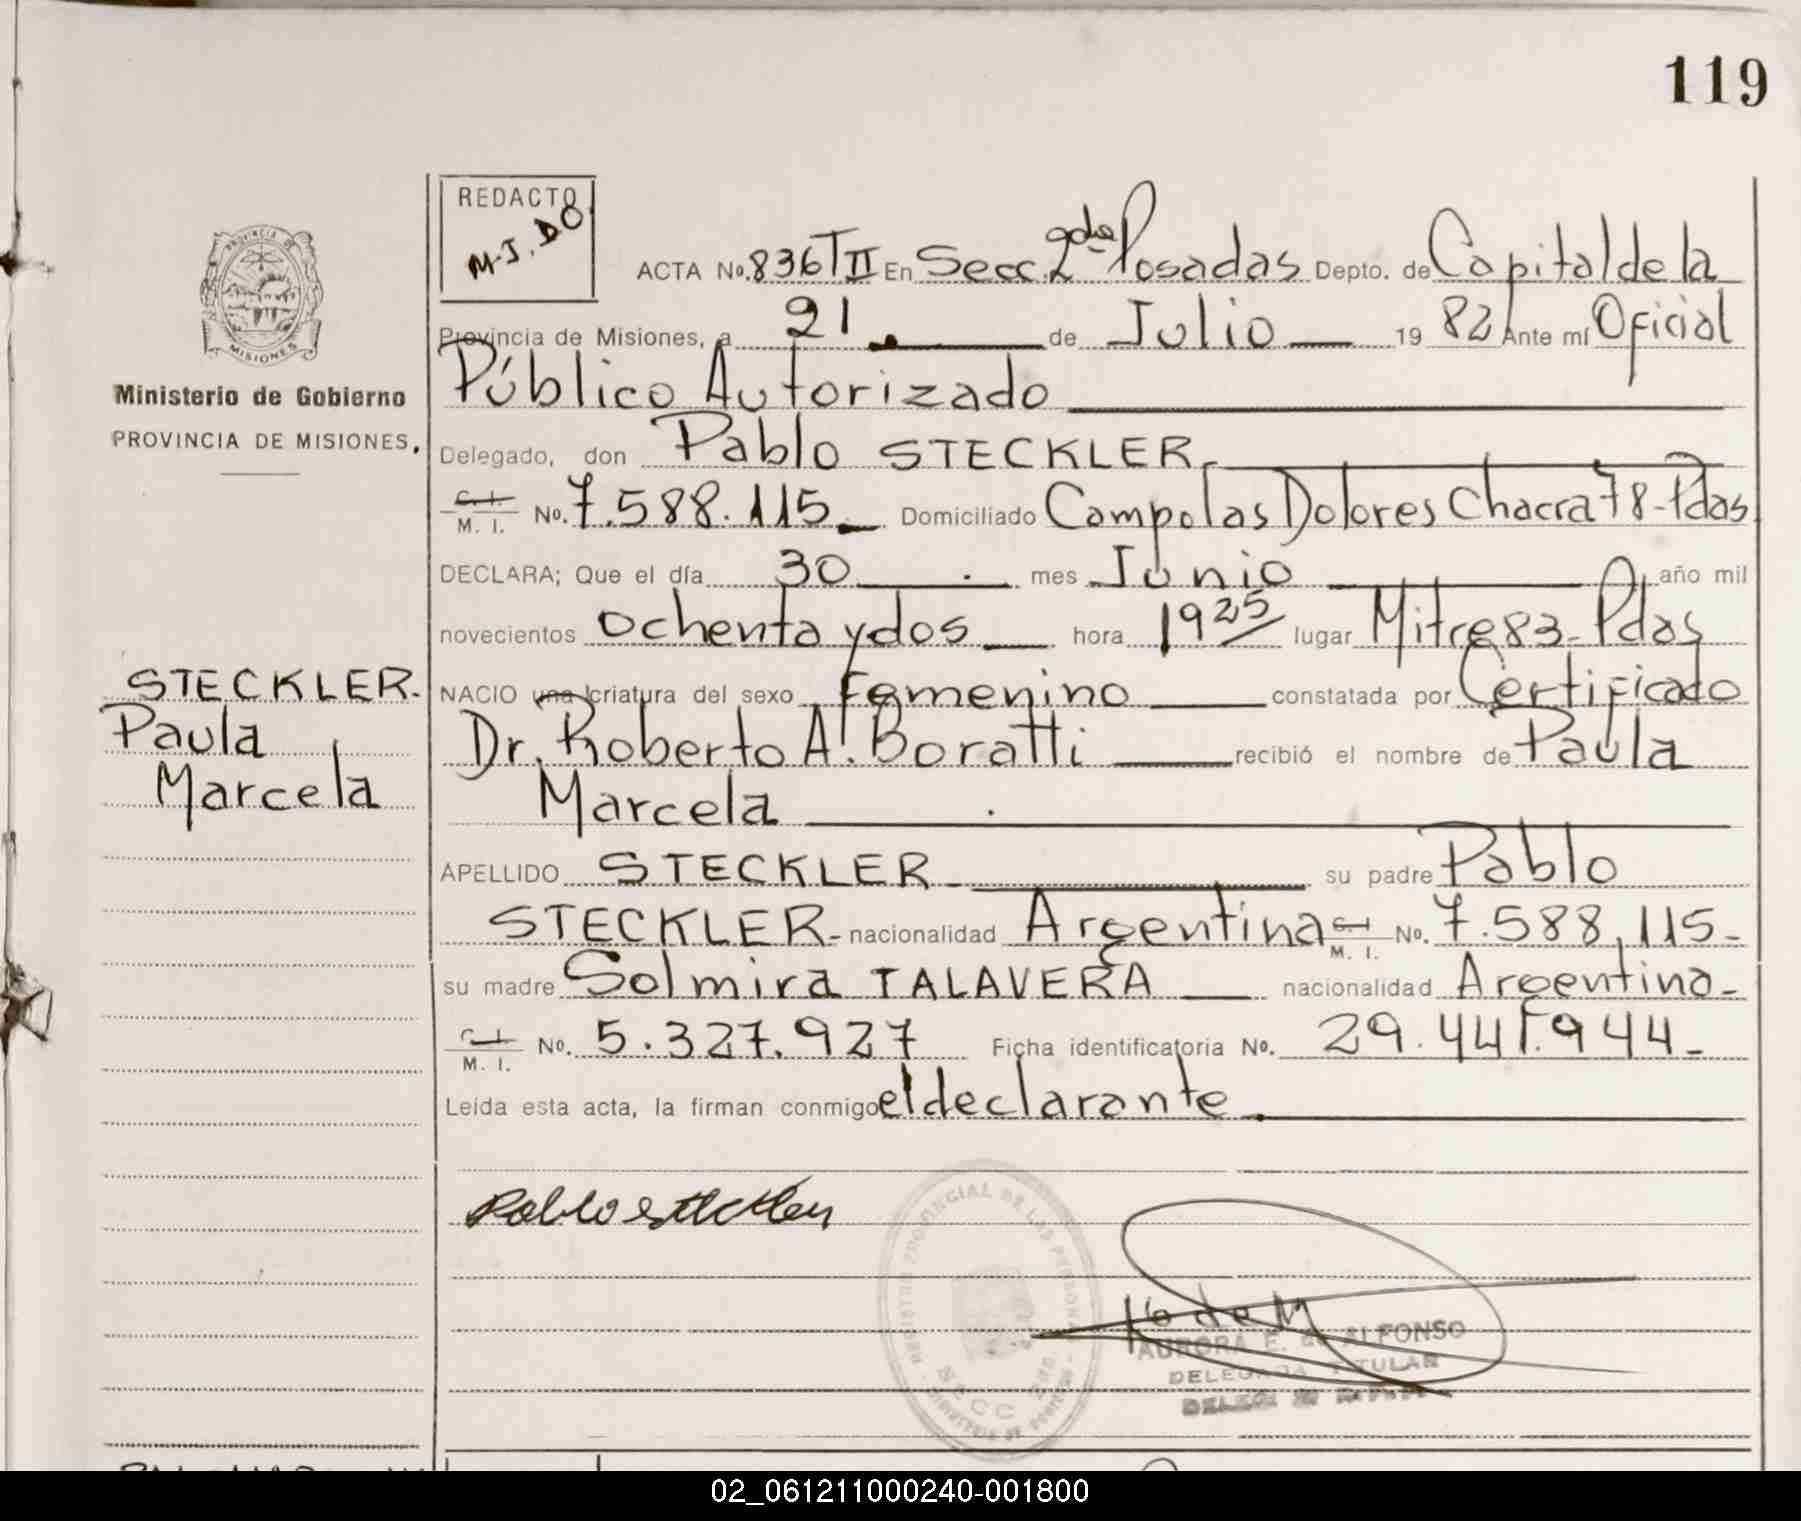 119
REDACTO
M.J.DO
ACTA No. 836 TII En Secc. 2da Posadas Depto. de Capital de la
PROVINCIA DE
MISIONES
Provincia de Misiones, a 21 de Julio 1982 Ante mí Oficial
Ministerio de Gobierno
Público Autorizado
PROVINCIA DE MISIONES,
Delegado, don Pablo STECKLER
C. I.
M. I. No. 7.588.115 Domiciliado Campo las Dolores Chacra 78-Pdas
DECLARA; Que el día 30 mes Junio año mil
novecientos ochenta y dos hora 1925 lugar Mitre 83-Pdas
STECKLER.
NACIO una criatura del sexo Femenino constatada por Certificado
Paula
Dr. Roberto A. Boratti recibió el nombre de Paula
Marcela
Marcela
APELLIDO STECKLER su padre Pablo
STECKLER- nacionalidad Argentina C. I. M. I. No. 7.588.115-
su madre Solmira TALAVERA nacionalidad Argentina-
C. I.
M. I. No. 5.327.927 Ficha identificatoria No. 29.441.944-
Leída esta acta, la firman conmigo el declarante.
Pablo Steckler
REGISTRO PROVINCIAL DE LAS PERSONAS
SECC 2da
AURORA E. de ALFONSO
DELEGADA TITULAR
02_061211000240-001800